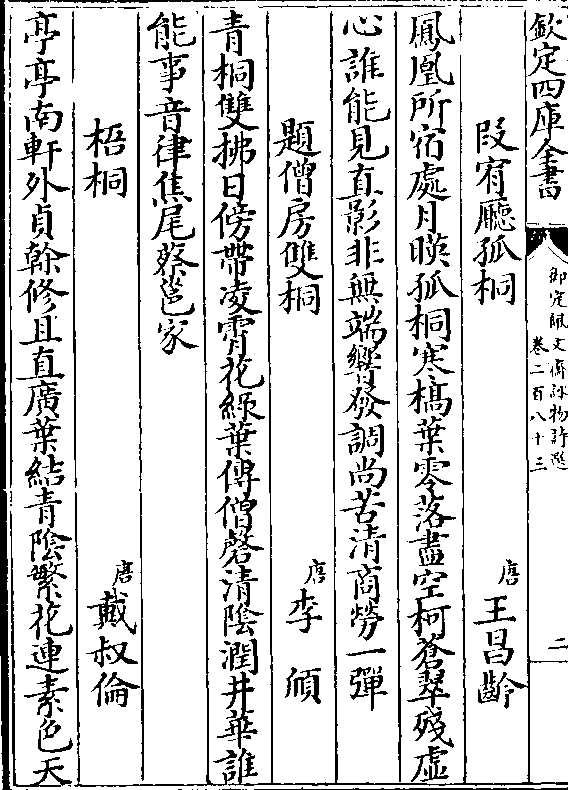 欽定四庫全書
御定佩文齋詠物詩選
卷二百八十三
二
段宥廳孤桐
唐
王昌齡
鳳凰所宿處月暎孤桐寒槁葉零落盡空柯蒼翠殘虛
心誰能見直影非無端響發調尚苦清商勞一彈
題僧房雙桐
唐
李頎
青桐雙拂日傍帶凌霄花綠葉傳僧磬清陰潤井華誰
能事音律焦尾蔡邕家
梧桐
唐
戴叔倫
亭亭南軒外貞榦修且直廣葉結青陰繁花連素色天